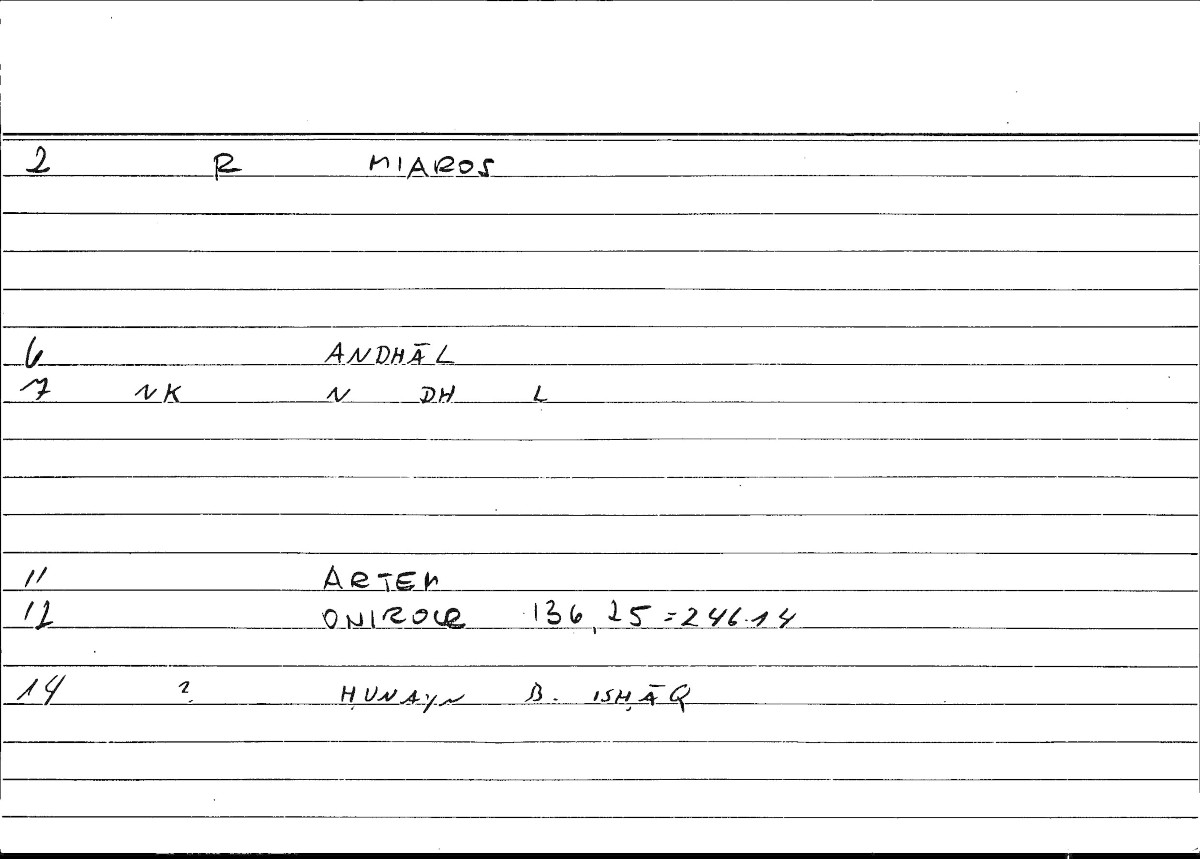 2 R MIAROS
6 ANDHĀL
7 NK N DH L
11 ARTEM
12 ONIROCR 136,25=246.14
14 ? ḤUNAYN B. ISḤĀQ